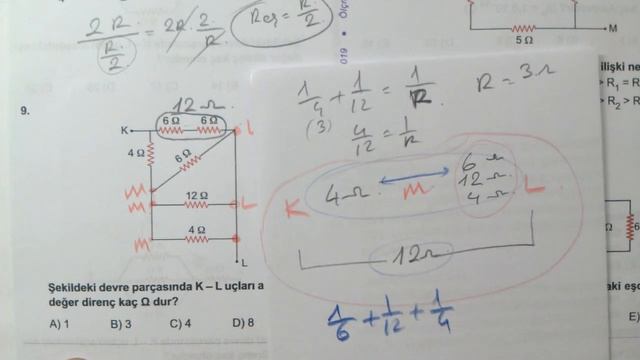 2R
R/2
= 2R . 2/R
Reş = R/2
019
5 Ω
M
ilişki ne
R₁ = R
R₂ >
9.
12 Ω
6 Ω 6 Ω
K
L
4 Ω
6 Ω
M
M
12 Ω
L
M
4 Ω
L
Şekildeki devre parçasında K – L uçları a
değer direnç kaç Ω dur?
A) 1 B) 3 C) 4 D) 8
1/4 + 1/12 = 1/R R = 3Ω
(3)
4/12 = 1/R
K 4Ω M 6Ω 12Ω 4Ω L
12Ω
1/6 + 1/12 + 1/4
Ω
6
aki eşd
E)